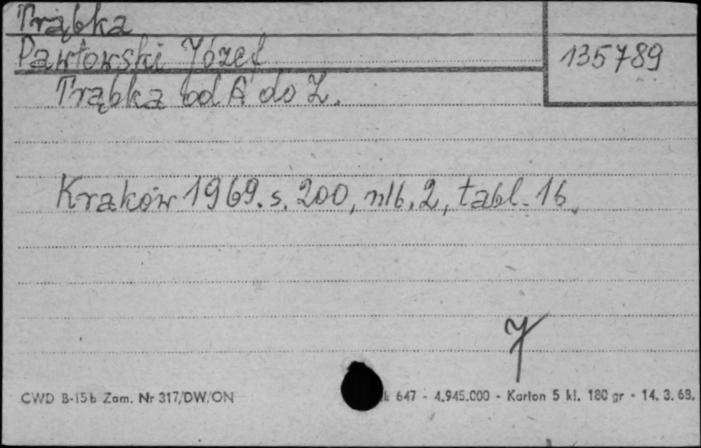 Trąbka
Pawłowski Józef
135789
Trąbka od A do Z.
Kraków 1969. s. 200, nlb. 2, tabl. 16.
CWD B-15b Zam. Nr 317/DW/ON
647 - 4.945.000 - Karton 5 kl. 180 gr - 14. 3. 68.